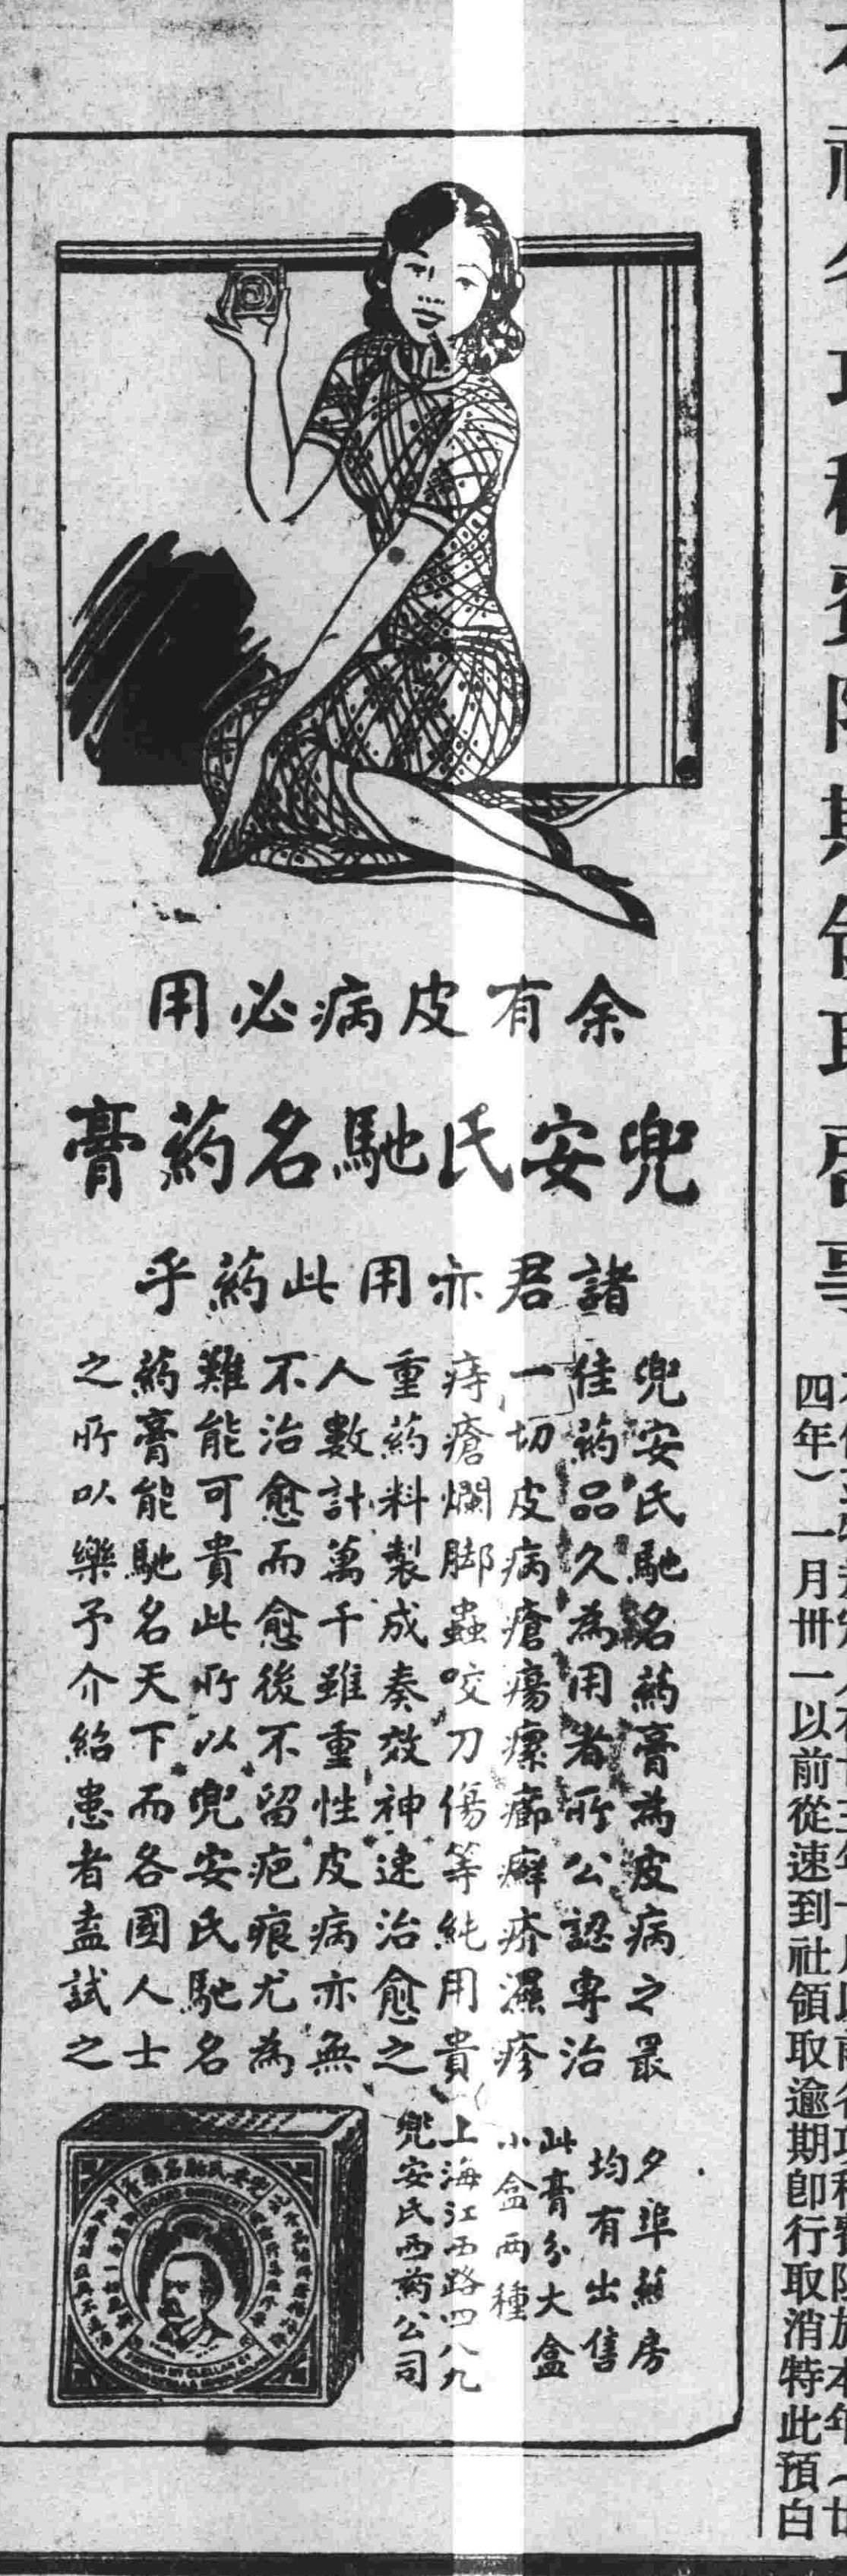 余有皮病必用
兜安氏馳名葯膏
諸君亦用此葯乎
兜安氏馳名葯膏為皮病之最
佳葯品久為用者所公認專治
一切皮病瘡瘍瘰癤癬疥濕疹
痔瘡爛脚蟲咬刀傷等純用貴
重葯料製成奏效神速治愈之
人數計萬千雖重性皮病亦無
不治愈而愈後不留疤痕尤為
難能可貴此所以兜安氏馳名
葯膏能馳名天下而各國人士
之所以樂予介紹患者盍試之
均有出售
此膏分大盒
小盒两種
上海江西路四八九
兜安氏西葯公司
四年）一月卅一以前從速到社領取逾期卽行取消特此預白